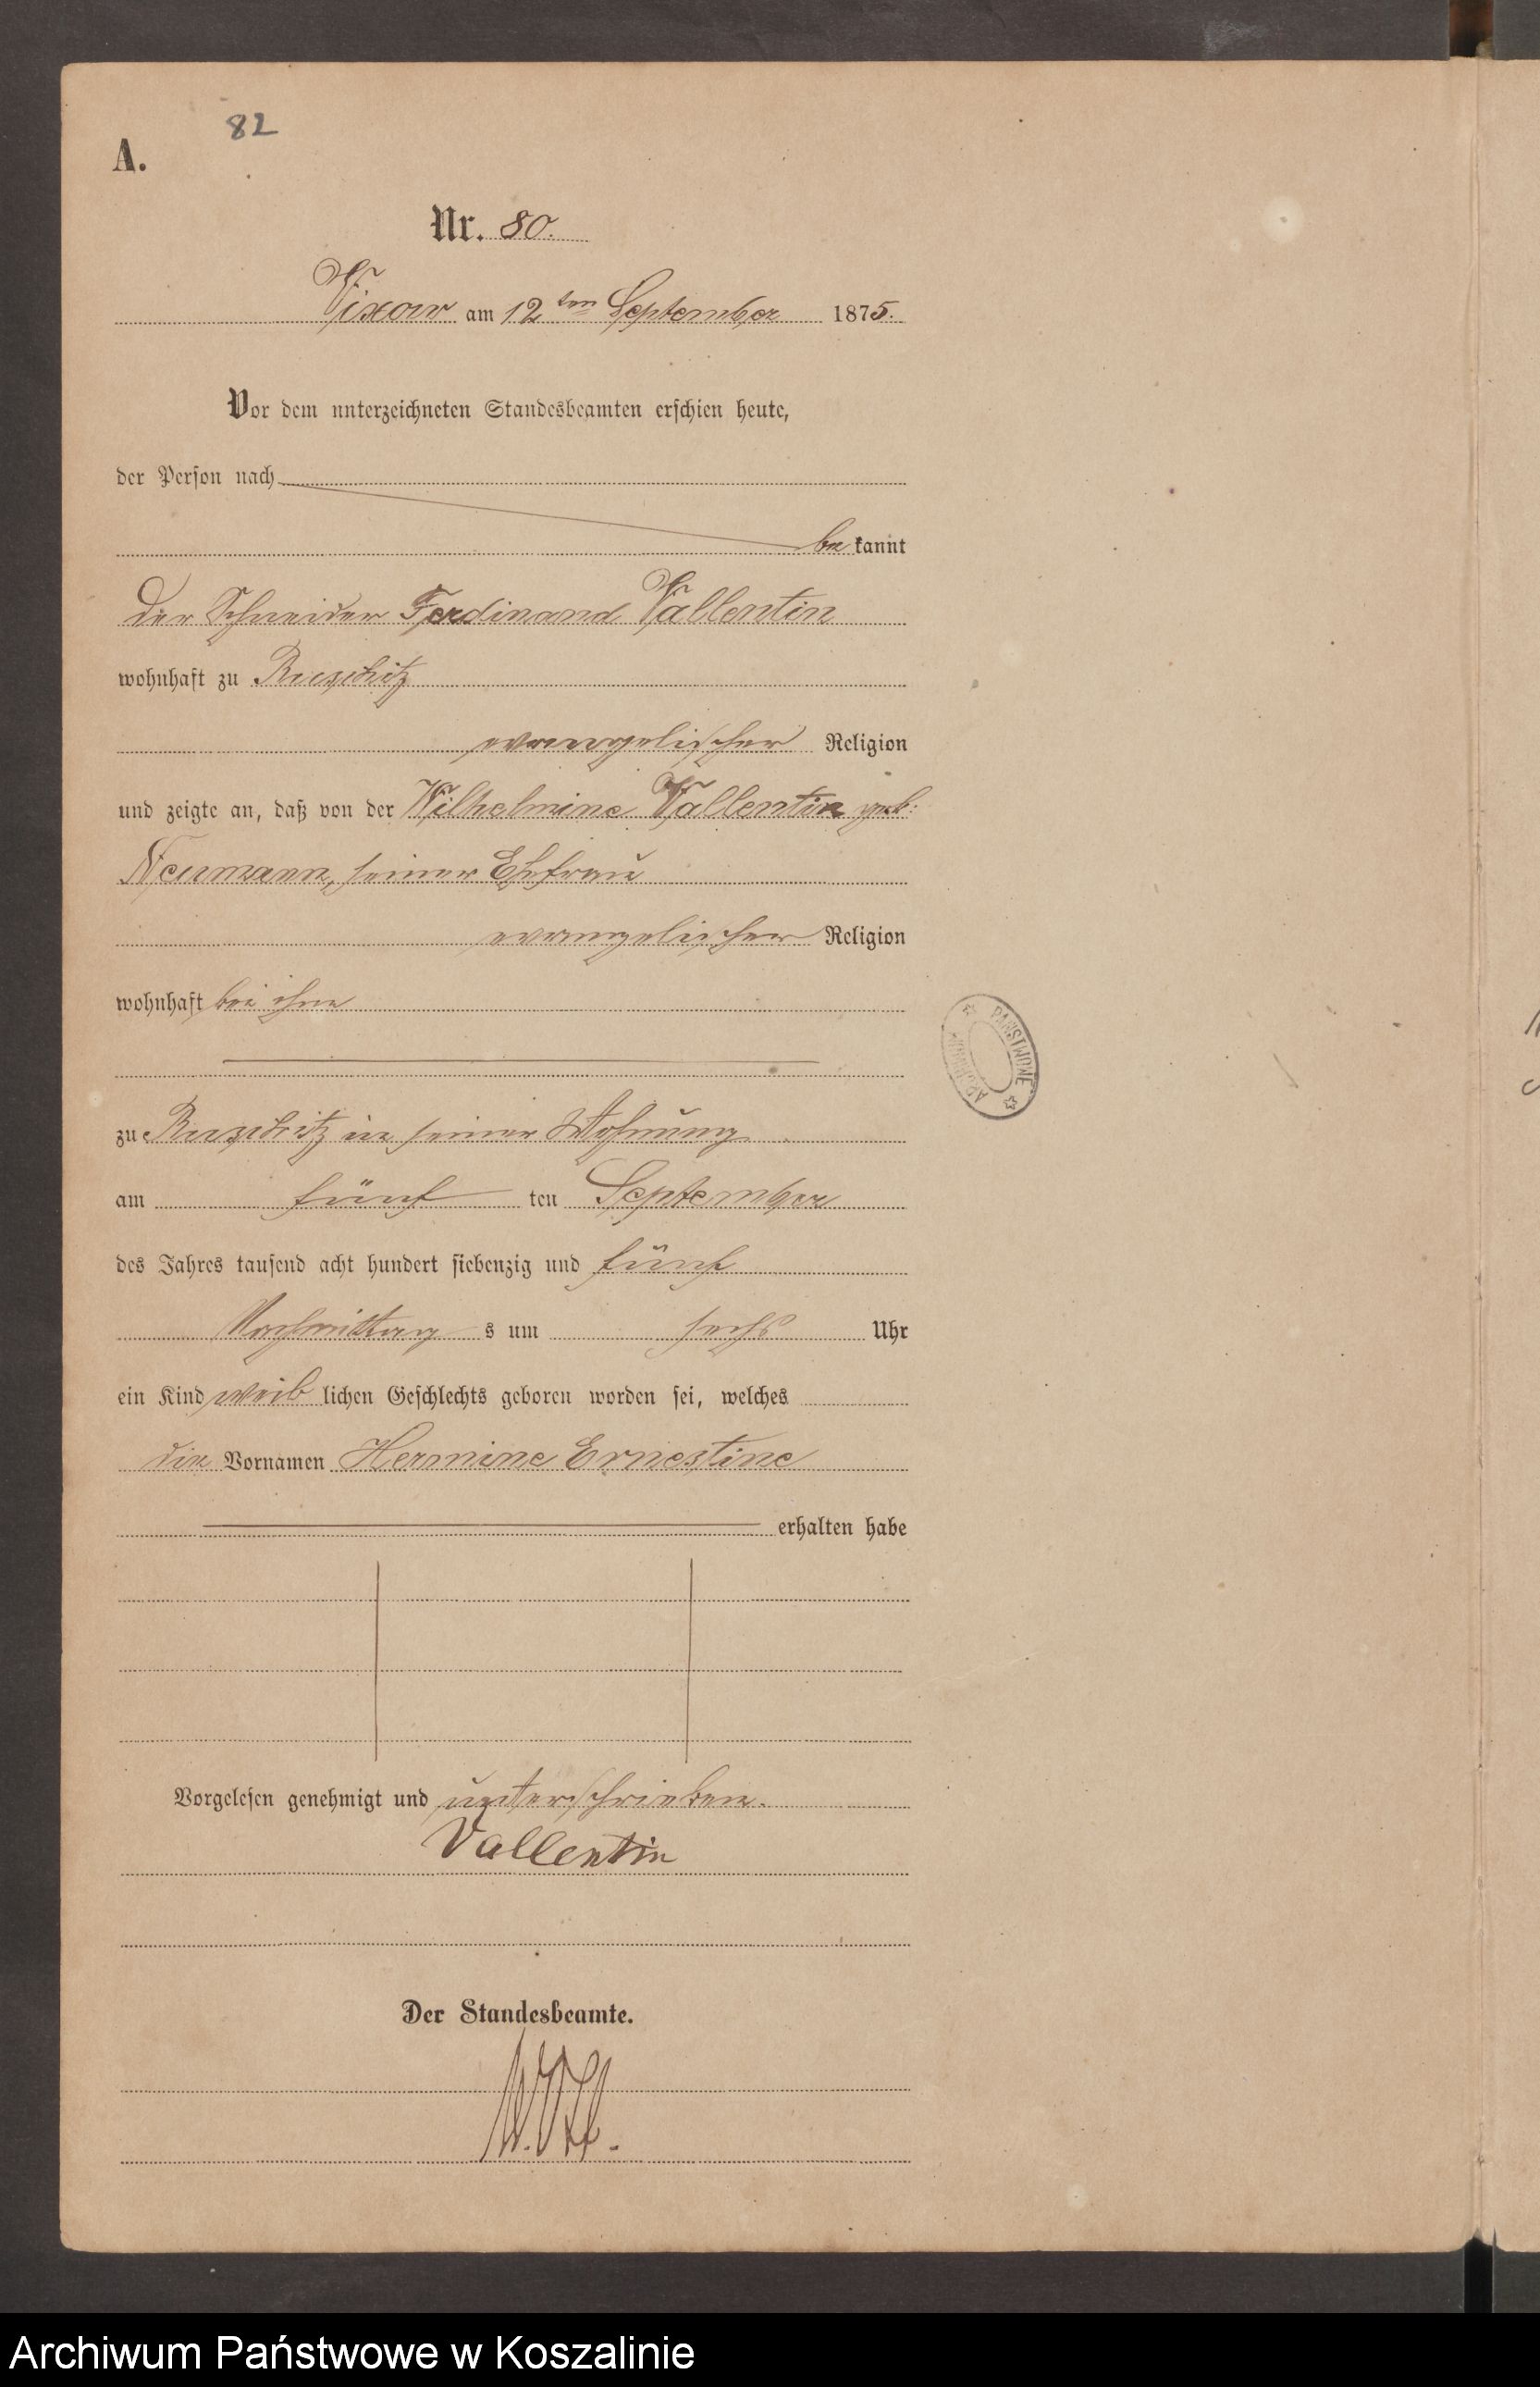 82
A.
Nr. 80.
Vixow am 12ten September 1875.
Vor dem unterzeichneten Standesbeamten erschien heute,
der Person nach
be kannt
der Schneider Ferdinand Vallentin
wohnhaft zu Ruschitz
evangelischer Religion
und zeigte an, daß von der Wilhelmine Vallentin geb:
Neumann, seiner Ehefrau
evangelischer Religion
wohnhaft bei ihm
zu Ruschitz in seiner Wohnung
am fünf ten September
des Jahres tausend acht hundert siebenzig und fünf
Nachmittag s um sechs Uhr
ein Kind weib lichen Geschlechts geboren worden sei, welches
die Vornamen Hermine Ernestine
erhalten habe
Vorgelesen genehmigt und unterschrieben.
Vallentin
Der Standesbeamte.
ARCHIWUM PAŃSTWOWE
Archiwum Państwowe w Koszalinie